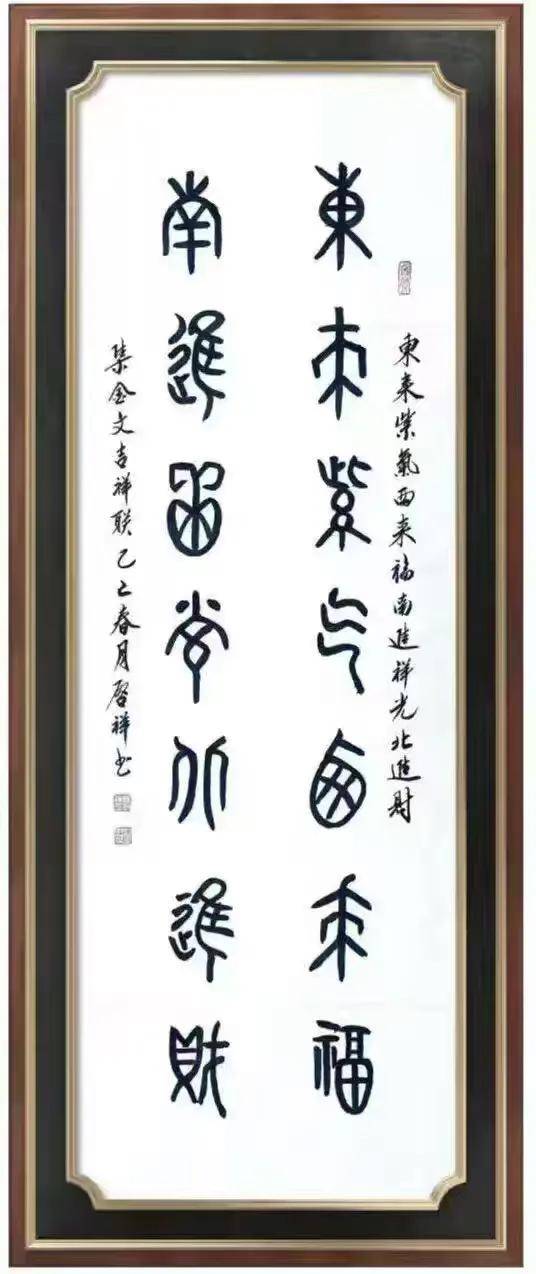 東來紫氣西來福南進祥光北進財
東來紫气西來福
南進祥光北進財
集金文吉祥联乙巳春月啓祥书